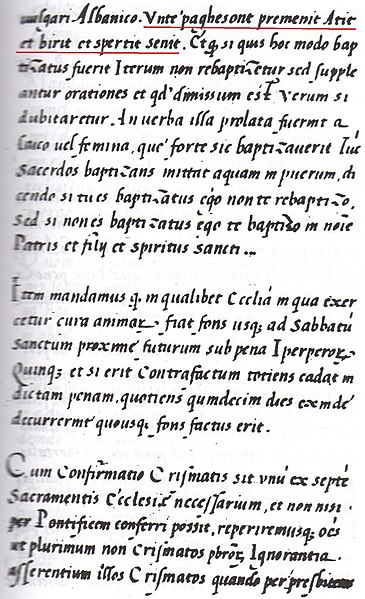 vulgari Albanico. Vnte paghesont premenit Atit
et birit et spertit senit. Etq, si quis hoc modo bap
tizatus fuerit Iterum non rebaptizetur sed supple
antur orationes et qd' dimissum est. Verum si
dubitaretur. An verba illa prolata fuerint a
Laico uel femina, que' forte sic baptizauerit tuc
Sacerdos baptizans mittat aquam in puerum, di
cendo si tu es baptizatus ego non te rebaptizo,
Sed si non es baptizatus ego te baptizo in noie
Patris et filij et Spiritus Sancti...
Item mandamus q, in qualibet Ecclia in qua exer
cetur cura animar, fiat fons usq, ad Sabbatu
Sanctum proxime futurum sub pena Iperperor
Quinq, et si erit Contrafactum totiens cadat in
dictam penam, quotiens quindecim dies exinde
decurrerint quousq, fons factus erit.
Cum Confirmatio Crismatis sit unu ex septe
Sacramentis Ecclesie necessarium, et non nisi
per Pontificem conferri possit, reperiremusq, oes
ut plurimum non Crismatos pbror, Ignorantia.
asserentium illos Crismatos quando per presbiteros